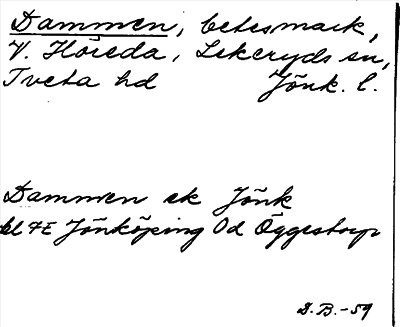 Dammen, betesmark,
V. Höreda, Lekeryds sn,
Tveta hd Jönk. l.
Dammen ek Jönk
bl 7E Jönköping Od Öggestorp
S. B. -59